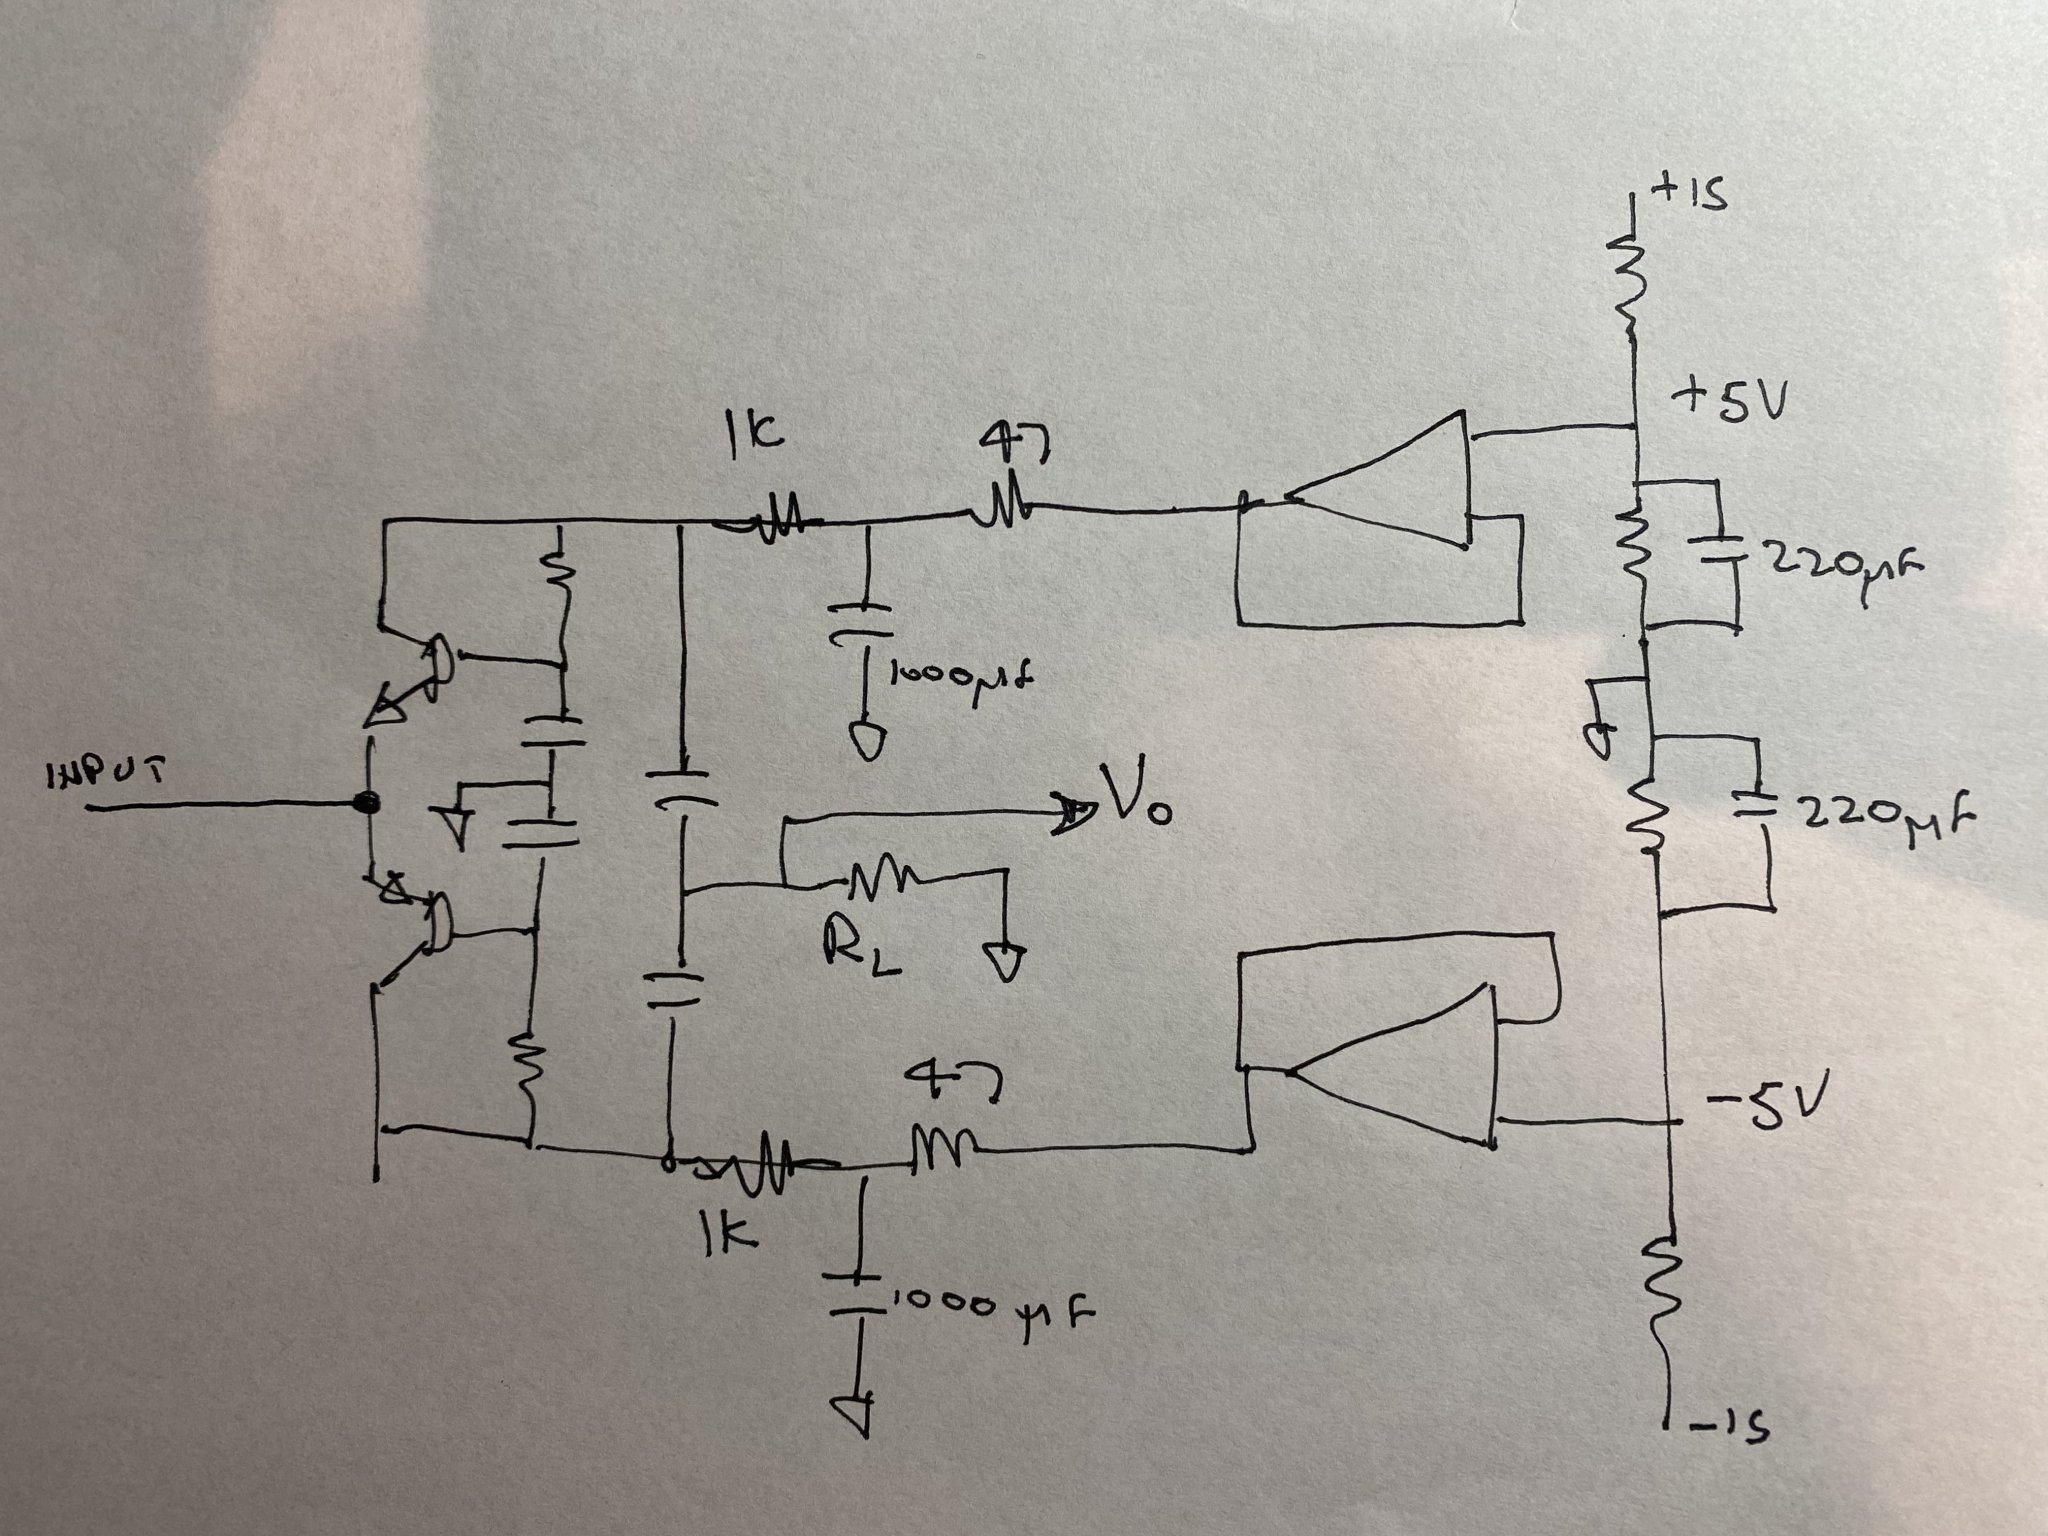 +15
+5V
1K
47
220µF
1000µF
INPUT
Vo
220µF
RL
47
-5V
1K
1000µF
-15